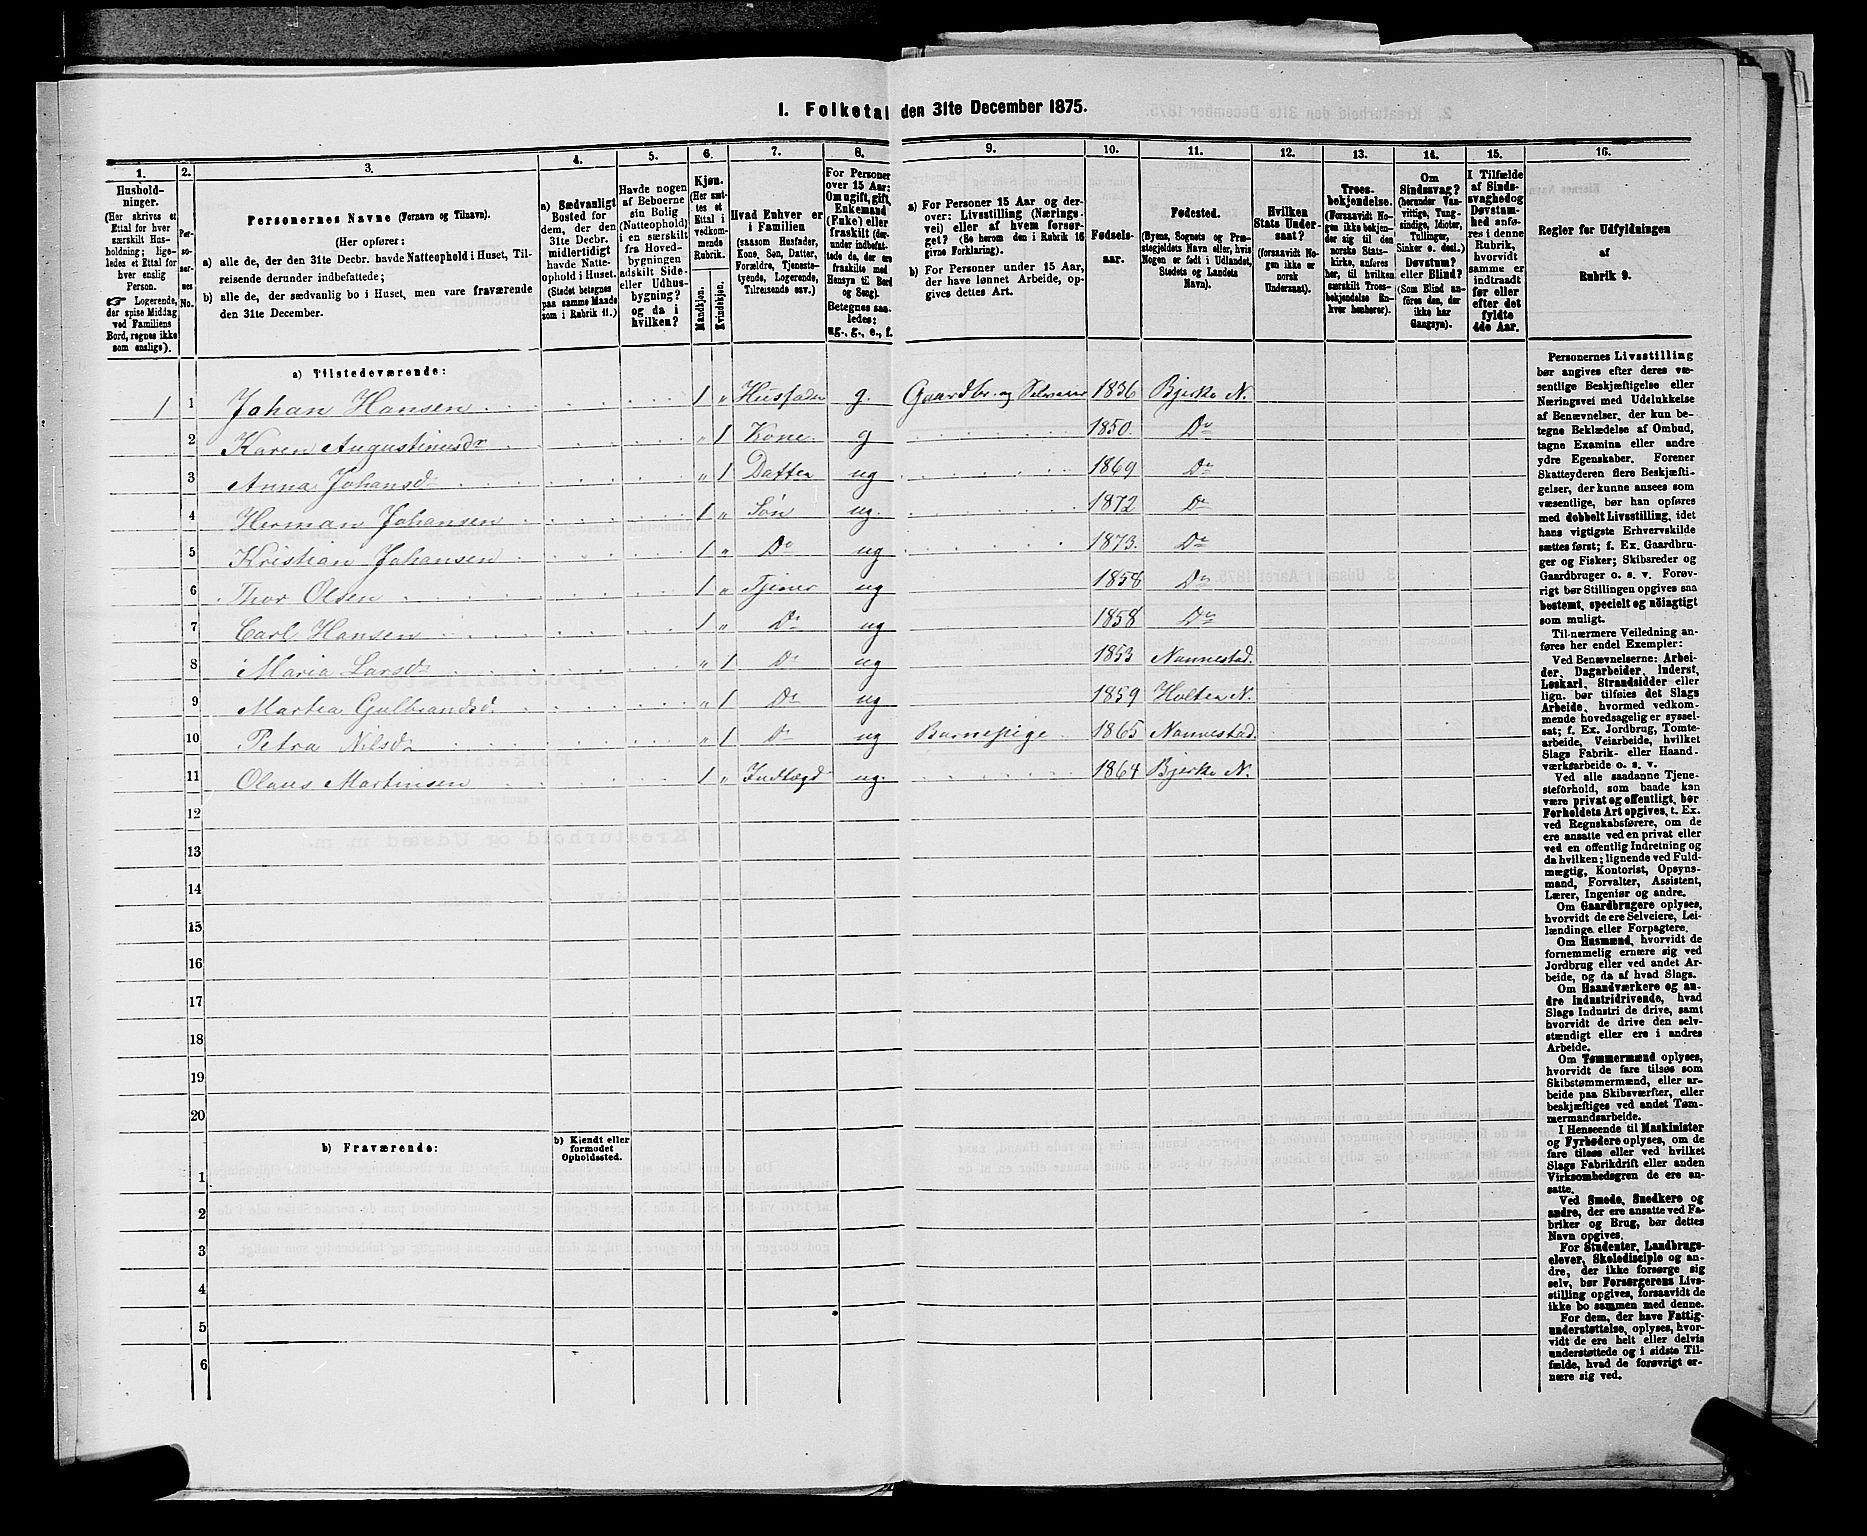 I. Folketal den 31te December 1875.
1. 2. 3. 4. 5. 6. 7. 8. 9. 10. 11. 12. 13. 14. 15. 16.
Husholdninger.
(Her skrives et
Ettal for hver
særskilt Husholdning;
ligeledes et Ettal for
hver enslig
Person.
☞ Logerende,
der spise Middag
ved Familiens
Bord, regnes ikke
som enslige).
Personernes No.
Personernes Navne (Fornavn og Tilnavn).
(Her opføres:
a) alle de, der den 31te Decbr. havde Natteophold i Huset, Tilreisende derunder indbefattede;
b) alle de, der sædvanlig bo i Huset, men vare fraværende
den 31te December.
a) Sædvanligt
Bosted for
dem, der den
31te Decbr.
midlertidigt
havde Natteophold i Huset.
(Stedet betegnes
paa samme Maade
som i Rubrik 11.)
Havde nogen
af Beboerne
sin Bolig
(Natteophold)
i en særskilt
fra Hovedbygningen
adskilt Side-
eller Udhusbygning?
og da i
hvilken?
Kjøn.
(Her sættes et
Ettal i
vedkommende
Rubrik.
Mandkjøn.
Kvindekjøn.
Hvad Enhver er
i Familien
(saasom Husfader,
Kone, Søn, Datter,
Forældre, Tjenestetyende, Logerende,
Tilreisende osv.)
For Personer
over 15 Aar:
Om ugift, gift,
Enkemand
(Enke) eller
fraskilt (derunder indbefattede da, der ere
fraskilte med
Hensyn til Bord
og Seng).
Betegnes saaledes:
ug., g., e., f.
a) For Personer 15 Aar og derover: Livsstilling (Næringsvei) eller af hvem forsørget? (Se herom den i Rubrik 16
givne Forklaring).
b) For Personer under 15 Aar,
der have lønnet Arbeide, opgives dettes Art.
Fødselsaar.
Fødested.
(Byens, Sognets og Præstegjeldets Navn eller, hvis
Nogen er født i Udlandet,
Stedets og Landets
Navn).
Hvilken
Stats Undersaat?
(forsaavidt Nogen ikke er
norsk
Undersaat).
Troesbekjendelse.
(Forsaavidt Nogen ikke bekjender sig til den
norske Statskirke, anføres
her, til hvilken
særskilt Troesbekjendelse Enhver henhører).
Om
Sindssvag?
(herunder Vanvittige, Tungsindige, Idioter,
Tullinger,
Sinker o. desl.)
Døvstum?
eller Blind?
(Som Blind anføres den, der
ikke har
Gangsyn).
I Tilfælde
af Sindssvaghed og
Døvstumhed anføres i denne
Rubrik,
hvorvidt
samme er
indtraadt
før eller
efter det
fyldte
4de Aar.
Regler for Udfyldningen
af
Rubrik 9.
a) Tilstedeværende:
1 1 Johan Hansen 1 „ Husfader g. Gaardbr. og Selveier 1836 Bjerke N.
2 Karen Augustinusdr „ 1 Kone g 1850. Do
3 Anna Johansd. „ 1 Datter ug 1869 Do
4 Herman Johansen 1 „ Søn ug. 1872 Do
5 Kristian Johansen 1 „ Do ug 1873. Do
6 Thor Olsen 1 „ Tjener ug 1858 Do
7 Carl Hansen 1 „ Do ug 1858 Do
8 Maria Larsdr „ 1 Do ug 1853 Nannestad.
9 Martea Gulbrandsd. „ 1 Do ug 1859 Holter N.
10 Petra Nilsdr „ 1 Do ug Barnepige 1865 Nannestad.
11 Olaus Martinsen 1 „ Indlægd ug. 1864 Bjerke N.
12
13
14
15
16
17
18
19
20
b) Fraværende:
b) Kjendt eller
formodet
Opholdssted.
1
2
3
4
5
6
Personernes Livsstilling
bør angives efter deres væsentlige Beskjæftigelse eller
Næringsvei med Udelukkelse
af Benævnelser, der kun betegne Beklædelse af Ombud,
tagne Examina eller andre
ydre Egenskaber. Forener
Skatteyderen flere Beskjæftigelser, der kunne ansees som
væsentlige, bør han opføres
med dobbelt Livsstilling, idet
hans vigtigste Erhvervskilde
sættes først; f. Ex. Gaardbruger og Fisker; Skibsreder og
Gaardbruger o. s. v. Forøvrigt bør Stillingen opgives saa
bestemt, specielt og nöiagtigt
som muligt.
Til nærmere Veiledning anføres her endel Exempler:
Ved Benævnelserne: Arbeider, Dagarbeider, Inderst,
Løskarl, Strandsidder eller
lign. bør tilføies det Slags
Arbeide, hvormed vedkommende hovedsagelig er sysselsat; f. Ex. Jordbrug, Tomtearbeide, Veiarbeide, hvilket
Slags Fabrik- eller Haandværksarbeide o. s. v.
Ved alle saadanne Tjenesteforhold, som baade kan
være privat og offentligt, bør
Forholdets Art opgives, t. Ex.
ved Regnskabsførere, om de
ere ansatte ved en privat eller
ved en offentlig Indretning og
da hvilken; lignende ved Fuldmægtig, Kontorist, Opsynsmand, Forvalter, Assistent,
Lærer, Ingeniør og andre.
Om Gaardbrugere oplyses,
hvorvidt de ere Selveiere, Leilændinge eller Forpagtere.
Om Husmænd, hvorvidt de
fornemmelig ernære sig ved
Jordbrug eller ved andet Arbeide, og da af hvad Slags.
Om Haandværkere og andre Industridrivende, hvad
Slags Industri de drive, samt
hvorvidt de drive den selvstændigt eller ere i andres
Arbeide.
Om Tømmermænd oplyses,
hvorvidt de fare tilsøs som
Skibstømmermænd, eller arbeide paa Skibsværfter, eller
beskjæftiges ved andet Tømmermandsarbeide.
I Henseende til Maskinister
og Fyrbødere oplyses, om de
fare tilsøs eller ved hvilket
Slags Fabrikdrift eller anden
Virksomhedsgren de ere ansatte.
Ved Smede, Snedkere og
andre, der ere ansatte ved Fabriker og Brug, bør dettes
Navn opgives.
For Studenter, Landbrugselever, Skoledisciple og andre, der ikke forsørge sig
selv, bør Forsørgerens Livsstilling opgives, forsaavidt de
ikke bo sammen med denne.
For dem, der have Fattigunderstøttelse, oplyses, hvorvidt de ere helt eller delvis
understøttede og i sidste Tilfælde, hvad de forøvrigt ernære sig ved.